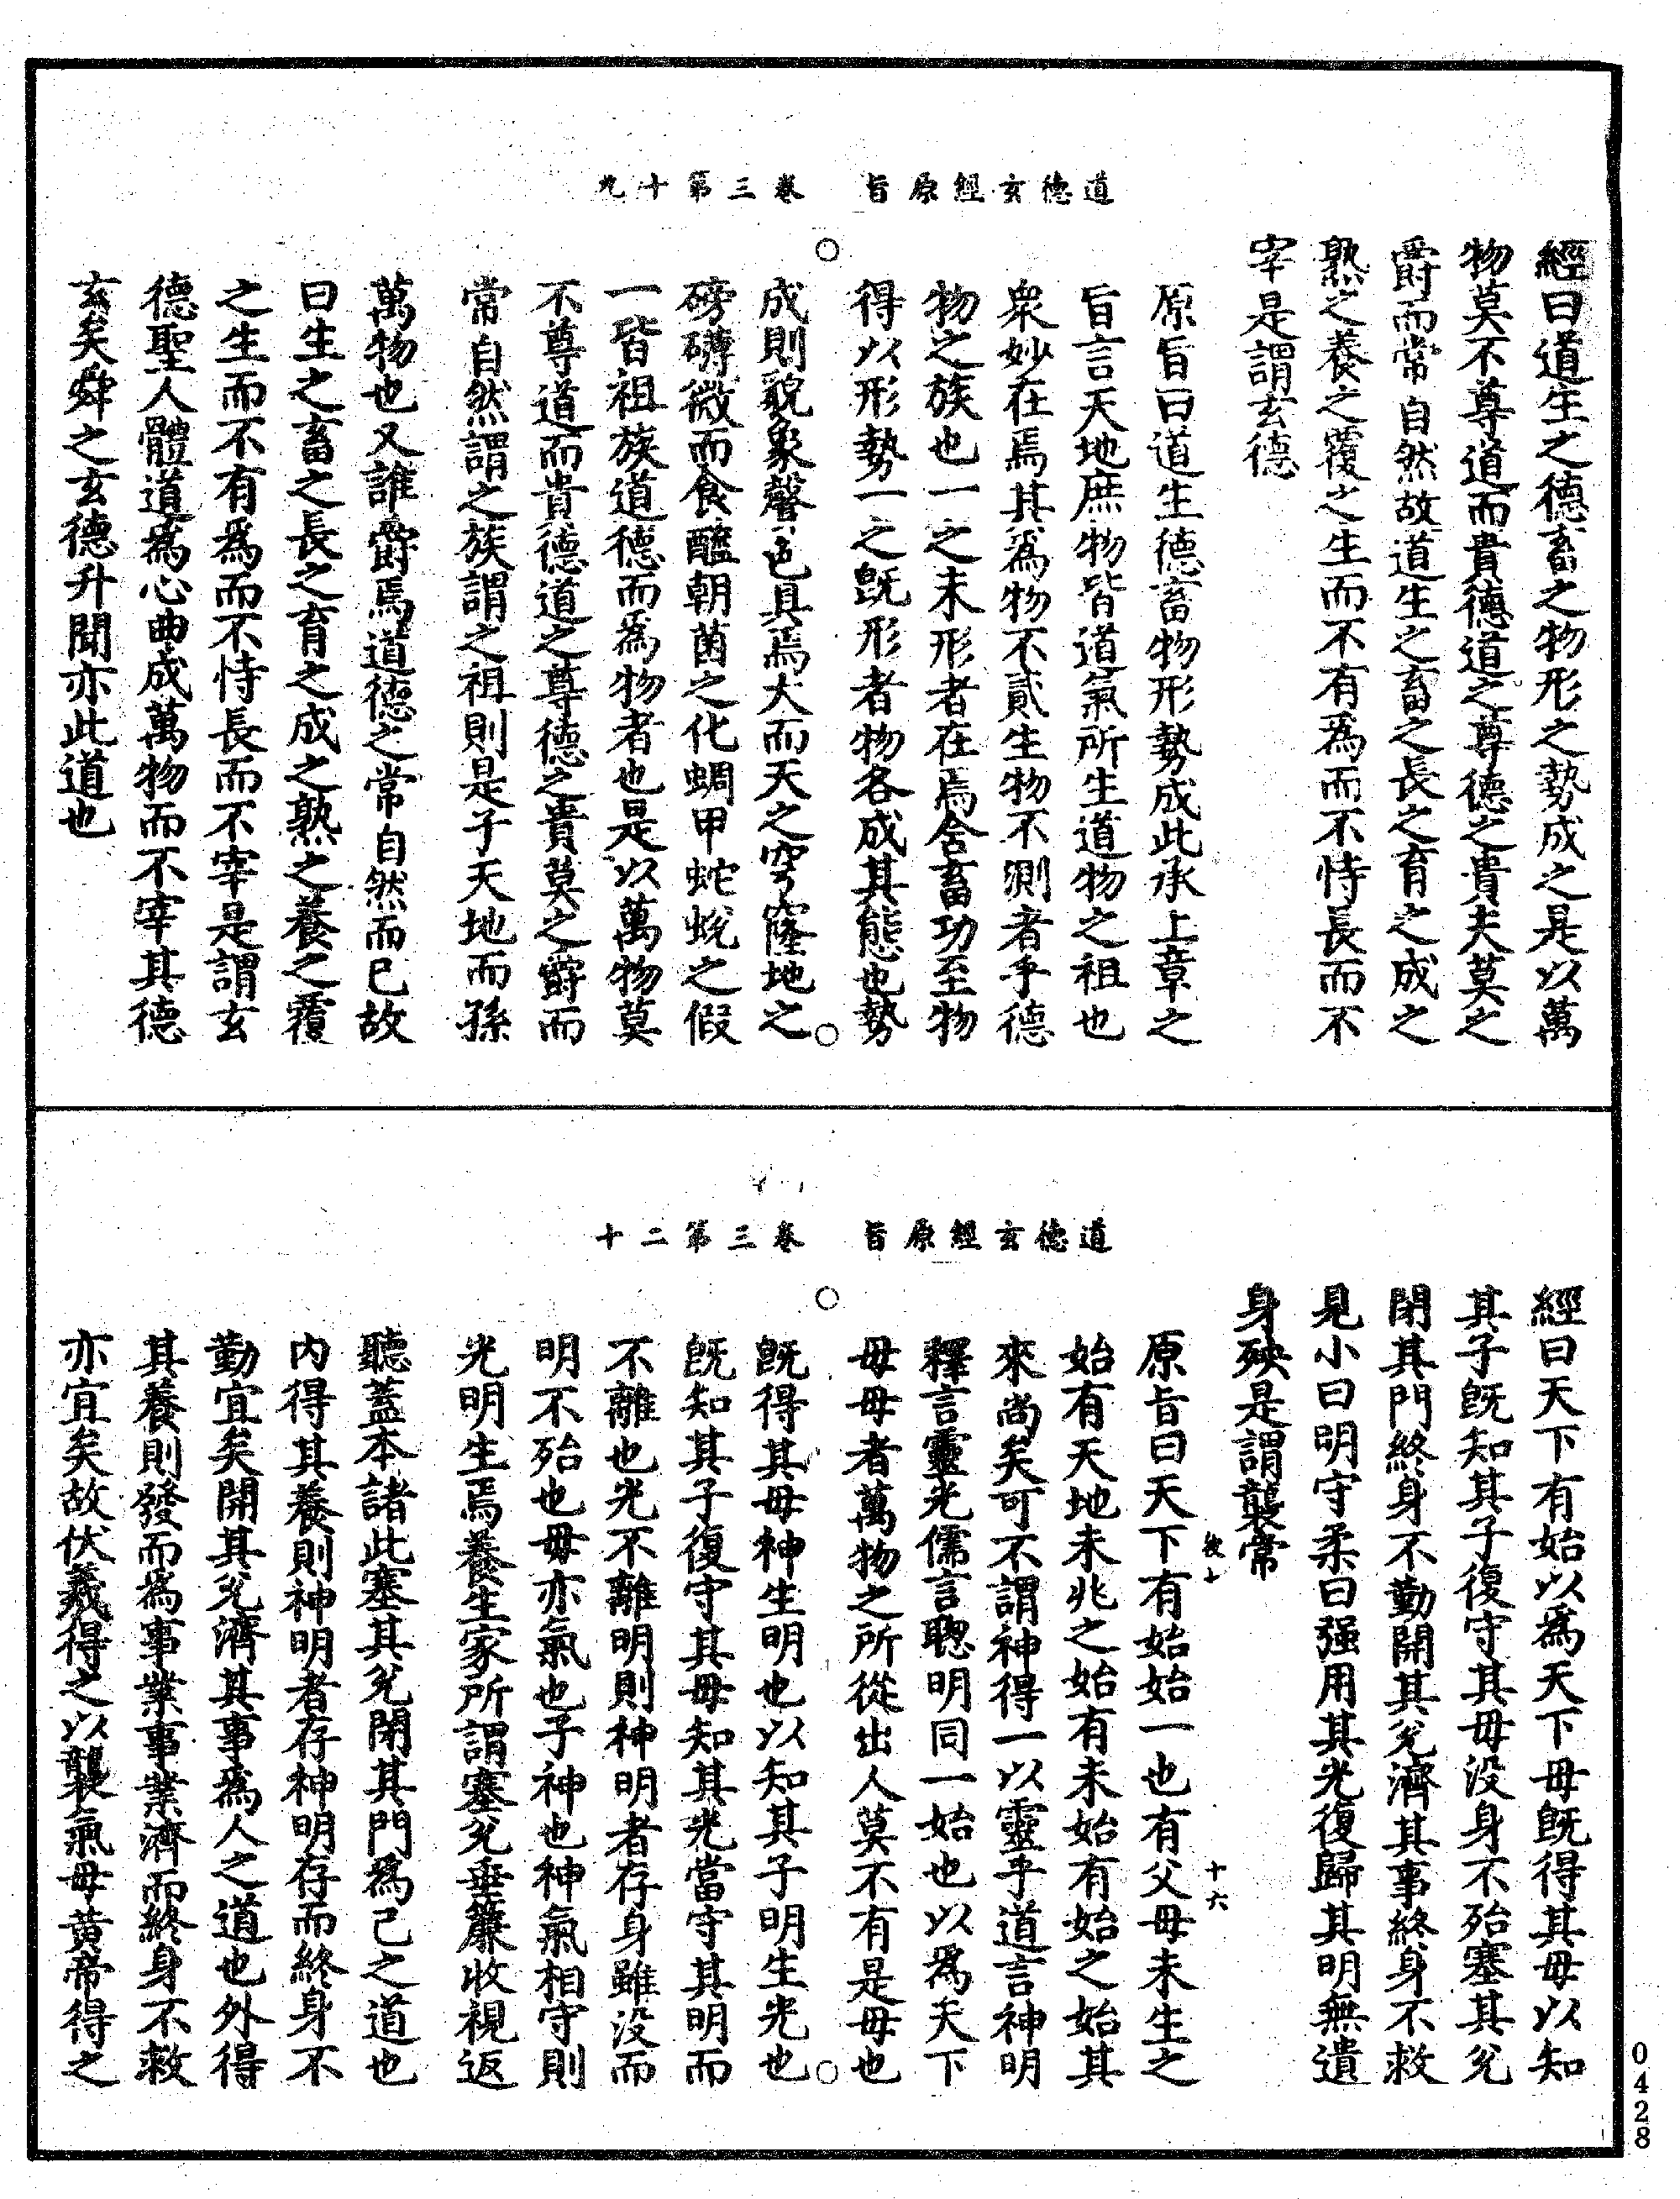 道德玄經原旨　卷三第十九
經曰道生之德畜之物形之勢成之是以萬
物莫不尊道而貴德道之尊德之貴夫莫之
爵而常自然故道生之畜之長之育之成之
熟之養之覆之生而不有為而不恃長而不
宰是謂玄德
原旨曰道生德畜物形勢成此承上章之
旨言天地庶物皆道氣所生道物之祖也
衆妙在焉其為物不貳生物不測者乎德
物之族也一之未形者在焉含畜功至物
得以形勢一之旣形者物各成其態也勢
成則貌象聲色具焉大而天之穹窿地之
磅礴微而食醯朝菌之化蜩甲蛇蛻之假
一皆祖族道德而為物者也是以萬物莫
不尊道而貴德道之尊德之貴莫之爵而
常自然謂之族謂之祖則是子天地而孫
萬物也又誰爵焉道德之常自然而已故
曰生之畜之長之育之成之熟之養之覆
之生而不有為而不恃長而不宰是謂玄
德聖人體道為心曲成萬物而不宰其德
玄矣舜之玄德升聞亦此道也
道德玄經原旨　卷三第二十
經曰天下有始以為天下母旣得其母以知
其子旣知其子復守其母没身不殆塞其兊
閉其門終身不勤開其兊濟其事終身不救
見小曰明守柔曰强用其光復歸其明無遺
身殃是謂襲常
原旨曰天下有始始一也有父母未生之
始有天地未兆之始有未始有始之始其
來尚矣可不謂神得一以靈乎道言神明
釋言靈光儒言聰明同一始也以為天下
母母者萬物之所從出人莫不有是母也
旣得其母神生明也以知其子明生光也
旣知其子復守其母知其光當守其明而
不離也光不離明則神明者存身雖没而
明不殆也母亦氣也子神也神氣相守則
光明生焉養生家所謂塞兊垂簾收視返
聽蓋本諸此塞其兊閉其門為己之道也
内得其養則神明者存神明存而終身不
勤宜矣開其兊濟其事為人之道也外得
其養則發而為事業事業濟而終身不救
亦宜矣故伏羲得之以襲氣母黃帝得之
十六
0428